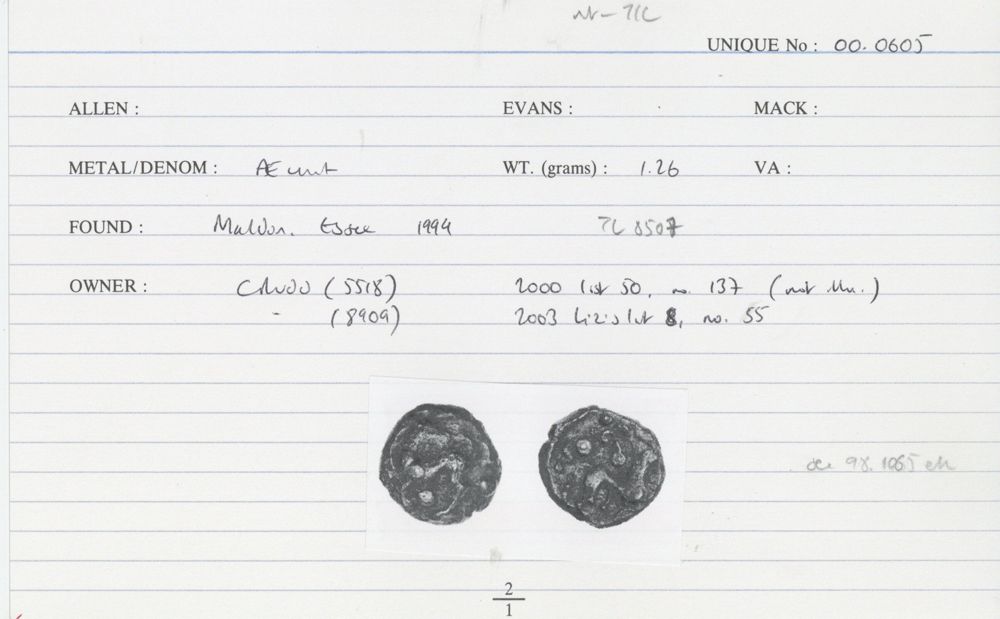 UNIQUE No : 00.0605
ALLEN : EVANS : MACK :
METAL/DENOM : Æ unit WT. (grams) : 1.26 VA :
FOUND : Maldon, Essex 1994
OWNER : (5518) 2000 list 50, no. 137 (not illus.)
- (8909) 2003 list 8, no. 55
98.1065
2
1